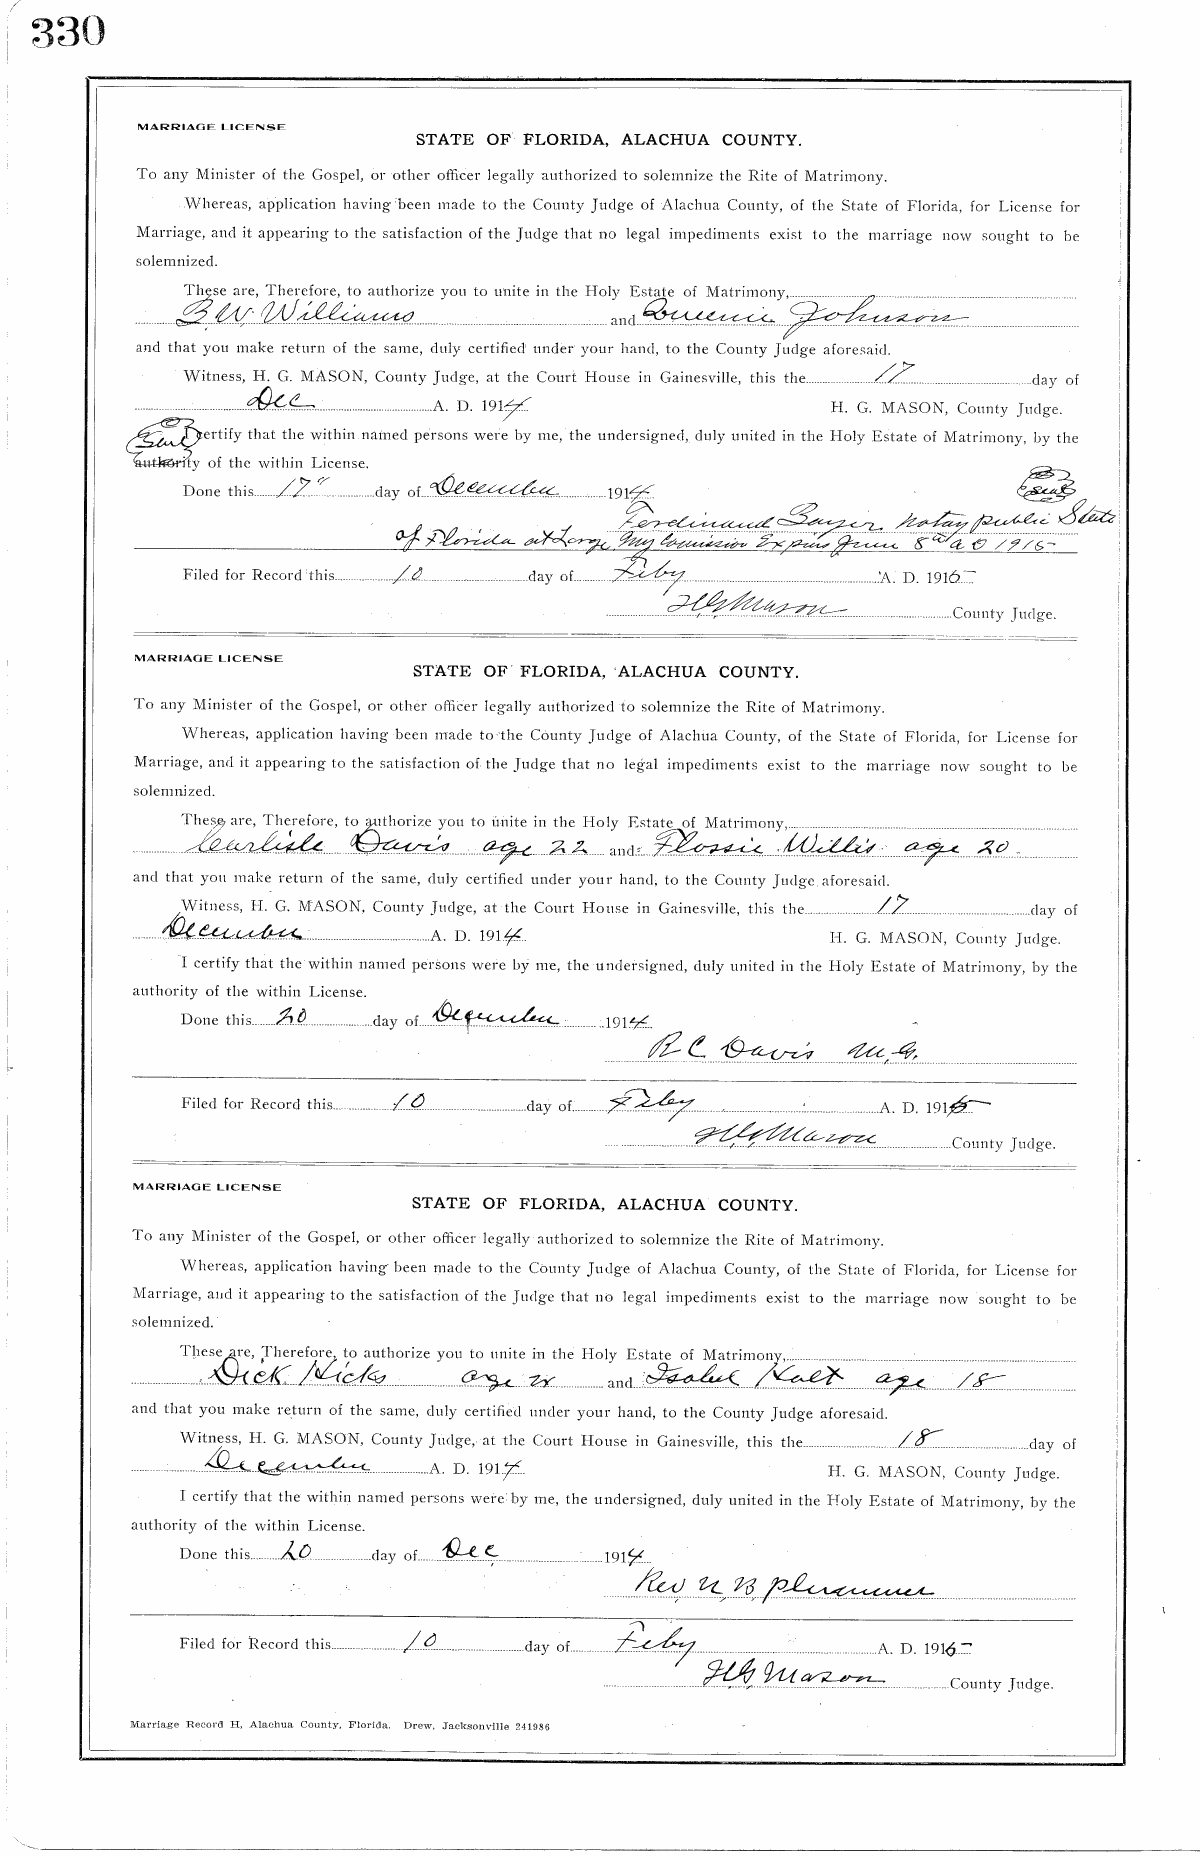 330
MARRIAGE LICENSE
STATE OF FLORIDA, ALACHUA COUNTY.
To any Minister of the Gospel, or other officer legally authorized to solemnize the Rite of Matrimony.
Whereas, application having been made to the County Judge of Alachua County, of the State of Florida, for License for
Marriage, and it appearing to the satisfaction of the Judge that no legal impediments exist to the marriage now sought to be
solemnized.
These are, Therefore, to authorize you to unite in the Holy Estate of Matrimony,
B W Williams and Queenie Johnson
and that you make return of the same, duly certified under your hand, to the County Judge aforesaid.
Witness, H. G. MASON, County Judge, at the Court House in Gainesville, this the 17 day of
Dec A. D. 1914 H. G. MASON, County Judge.
Seal certify that the within named persons were by me, the undersigned, duly united in the Holy Estate of Matrimony, by the
authority of the within License.
Done this 17" day of December 1914 Seal
Ferdinand Notary public State
of Florida at Large My Comission Expires June 8th A D 1915
Filed for Record this 10 day of Feby A. D. 1915
H G Mason County Judge.
MARRIAGE LICENSE
STATE OF FLORIDA, ALACHUA COUNTY.
To any Minister of the Gospel, or other officer legally authorized to solemnize the Rite of Matrimony.
Whereas, application having been made to the County Judge of Alachua County, of the State of Florida, for License for
Marriage, and it appearing to the satisfaction of the Judge that no legal impediments exist to the marriage now sought to be
solemnized.
These are, Therefore, to authorize you to unite in the Holy Estate of Matrimony,
Carlisle Davis age 22 and Flossie Willis age 20
and that you make return of the same, duly certified under your hand, to the County Judge aforesaid.
Witness, H. G. MASON, County Judge, at the Court House in Gainesville, this the 17 day of
December A. D. 1914 H. G. MASON, County Judge.
I certify that the within named persons were by me, the undersigned, duly united in the Holy Estate of Matrimony, by the
authority of the within License.
Done this 20 day of December 1914
R C Davis M. G.
Filed for Record this 10 day of Feby A. D. 1915
H G Mason County Judge.
MARRIAGE LICENSE
STATE OF FLORIDA, ALACHUA COUNTY.
To any Minister of the Gospel, or other officer legally authorized to solemnize the Rite of Matrimony.
Whereas, application having been made to the County Judge of Alachua County, of the State of Florida, for License for
Marriage, and it appearing to the satisfaction of the Judge that no legal impediments exist to the marriage now sought to be
solemnized.
These are, Therefore, to authorize you to unite in the Holy Estate of Matrimony,
Dick Hicks age and Isabel Holt age 18
and that you make return of the same, duly certified under your hand, to the County Judge aforesaid.
Witness, H. G. MASON, County Judge, at the Court House in Gainesville, this the 18 day of
December A. D. 1914 H. G. MASON, County Judge.
I certify that the within named persons were by me, the undersigned, duly united in the Holy Estate of Matrimony, by the
authority of the within License.
Done this 20 day of Dec 1914
Rev. N. B. Plummer
Filed for Record this 10 day of Feby A. D. 1915
H G Mason County Judge.
Marriage Record H, Alachua County, Florida. Drew, Jacksonville 241986